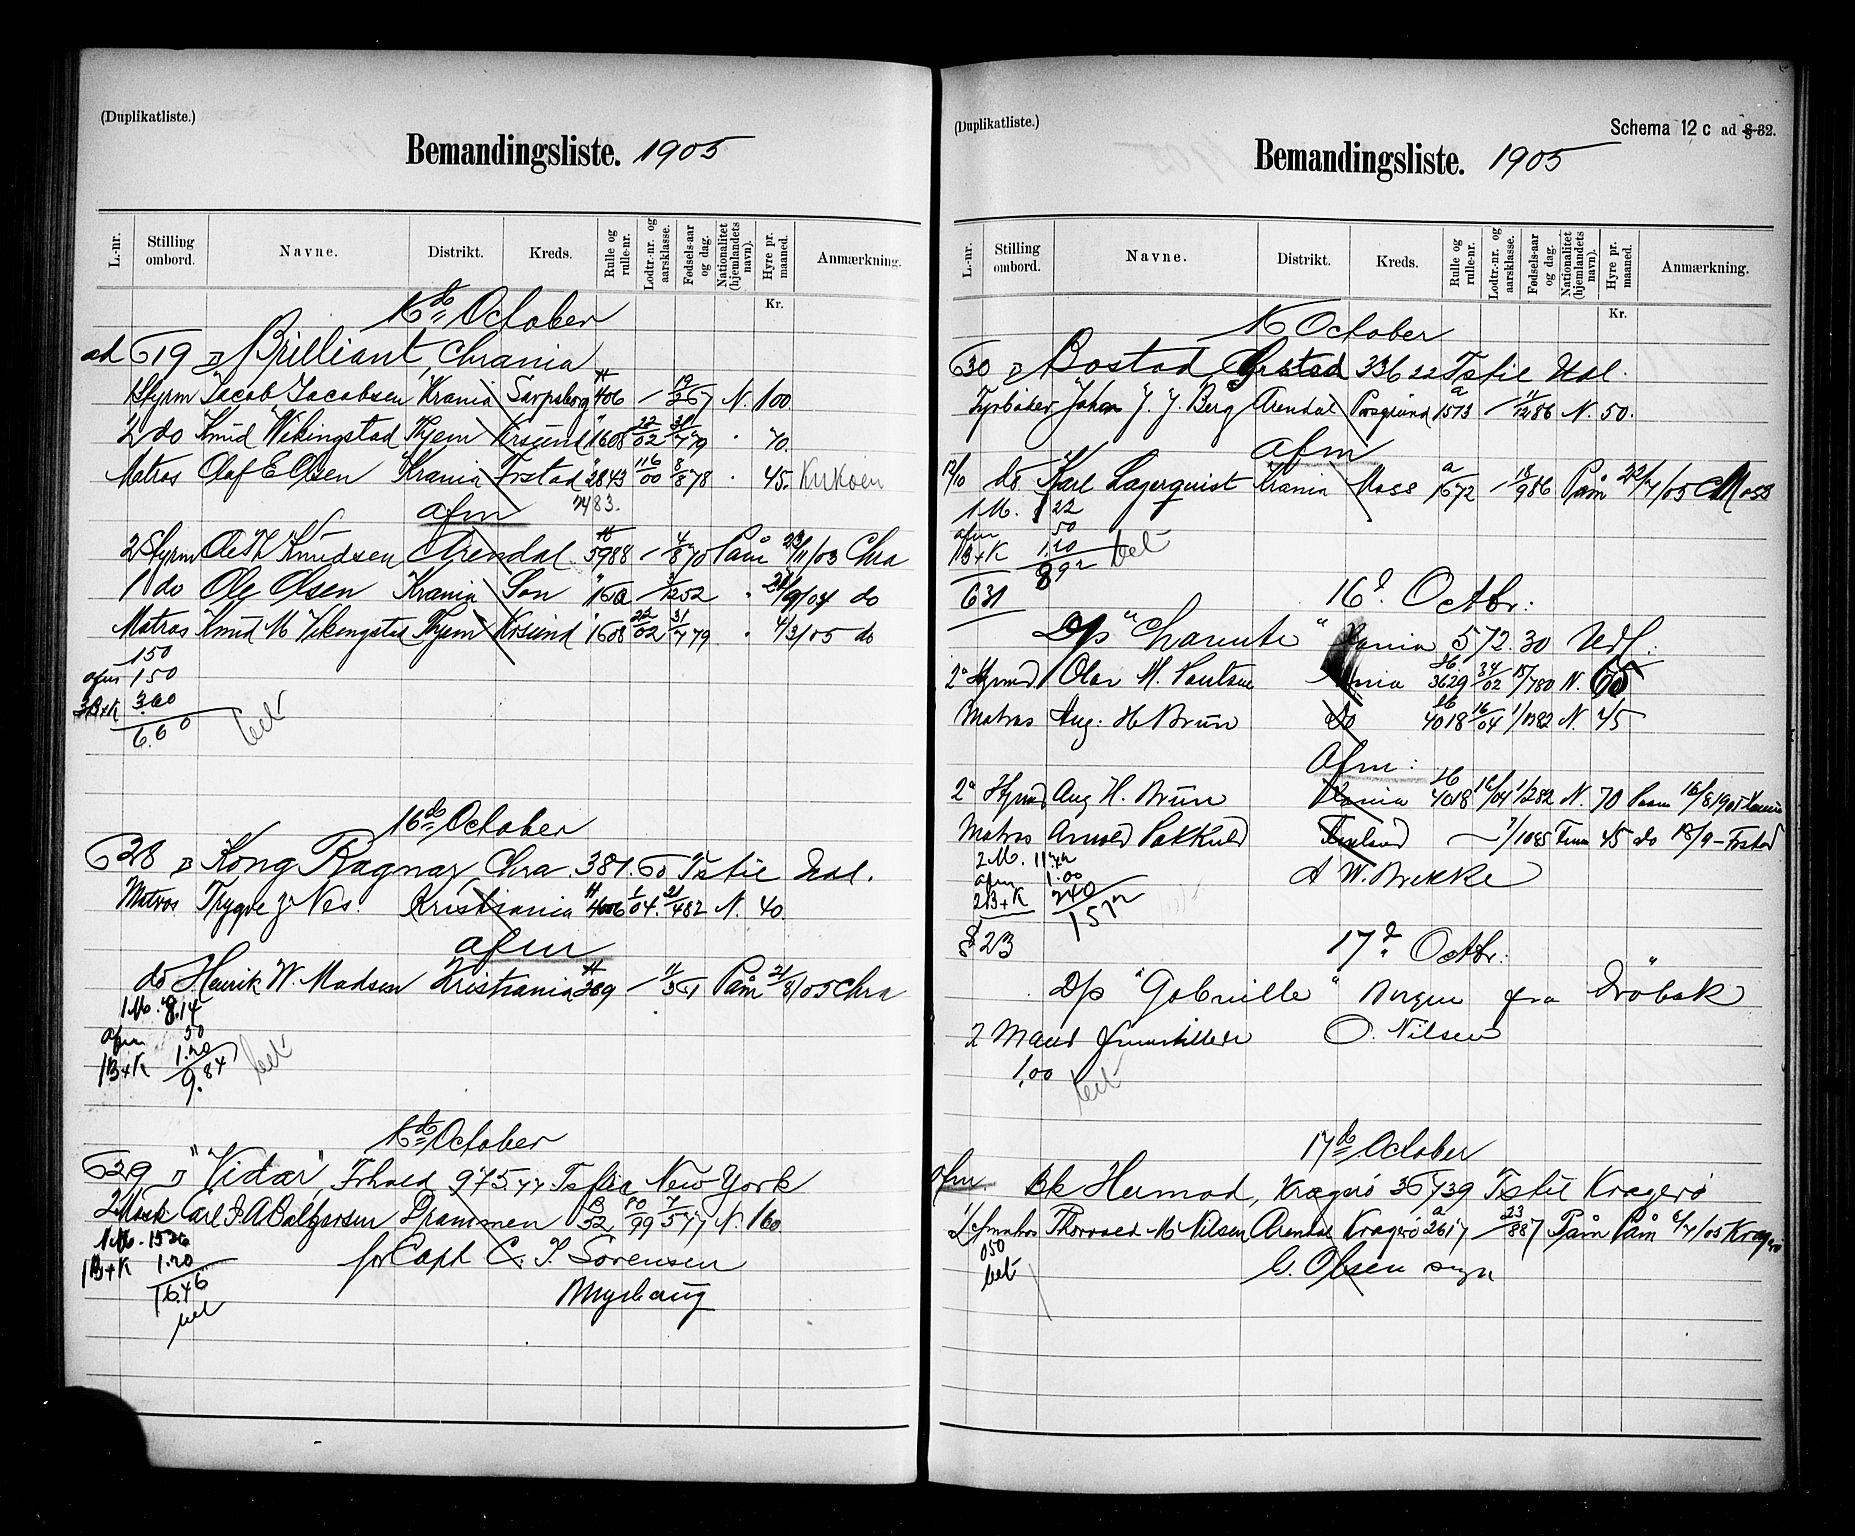 (Duplikatliste.)
Bemandingsliste. 1905
L.-nr. Stilling ombord. Navne. Distrikt. Kreds. Rulle og rulle-nr. Lodtr.-nr. og aarsklasse. Fødsels-aar og dag. Nationalitet (hjemlandets navn). Hyre pr. maaned. Anmærkning.
Kr.
16de October
ad 619 Brilliant, Chrania
1 Styrm Jacob Jacobsen Krania Sarpsborg 406 N. 100.
2 do Knud Wikingstad Thjem Krsund 1608 22/02 31/7 79 " 70.
Matros Olaf E Olsen Krania Frstad 2843 116/00 8/8 78 " 45.
2483.
afm
2 Styrm Ole Th Knudsen Arendal 5988 – 4/8 70 Påm 23/11/03 Chra
1 do Ole Olsen Krania Son – " do
Matros Knud M Vikingstad Thjem Krsund 1608 22/02 31/7 79 " 4/3/05 do
150
afm 150
3B+K 3.60
6.60 bet
16de October
628 Kong Ragnar Chra 381.60 Tstil Udl.
Matros Trygve J Nes. Kristiania 4006 1/04 21/4 82 N. 40
afm
do Henrik W. Madsen Kristiania 269 – Påm 21/8/05 Chra
1 M. 8.14
afm 50
1B+K 1.20
9.84 bet
16de October
629 "Vidar", Frhald 975,77 Tsfra New York
2 Mask Carl J. A Balzersen Drammen 52 80/99 7/5 77 N. 160
1 M. 1526
1B+K 1.20
16.46
bet
for Capt C. J. Sørensen
(Duplikatliste.)
Schema 12 c ad § 32.
Bemandingsliste. 1905
L.-nr. Stilling ombord. Navne. Distrikt. Kreds. Rulle og rulle-nr. Lodtr.-nr. og aarsklasse. Fødsels-aar og dag. Nationalitet (hjemlandets navn). Hyre pr. maaned. Anmærkning.
Kr.
16 October
630 Bostad, Grstad 336 22 Tstil Udl.
Fyrbøder Johan J. J. Berg Arendal Porsgrund 1573 – 86 N. 50.
afm
12/10 do Karl Lagerquist Krania Moss 1672 – 18/9 86 Påm 22/7/05 Moss
1 M. 22
afm 50
1B+K 1.20
892 bet
631
16d Octbr:
D/s "Charente" Krania 572.30 Udl.
2d Styrmd Olav M. Paulsen Krania 3629 34/02 15/7 80 N. 65
Matros Aug. H Brun do 4018 16/04 82 N. 45
Afm:
2d Styrmd Aug H. Brun Krania 4018 16/04 82 N. 70 Paam 16/8 1905 Krania
Matros Arnold Finland – 7/10 85 45 do 18/9 – Frstad
2 M. 11.
afm 1.00
2B+K 240
A W. Brekke
§ 23
17d Octbr:
D/s "Gabrielle" Bergen fra Drøbak
2 Mand O. Nilsen
1,00
bet
17de October
afm. Bk Hermod, Kragerø 35739 Tstil Kragerø
Thorvald M Nilsen Arendal Kragerø 2617 – 23/8 87 Påm 6/7/05 Kragerø
050
bet
G. Olsen